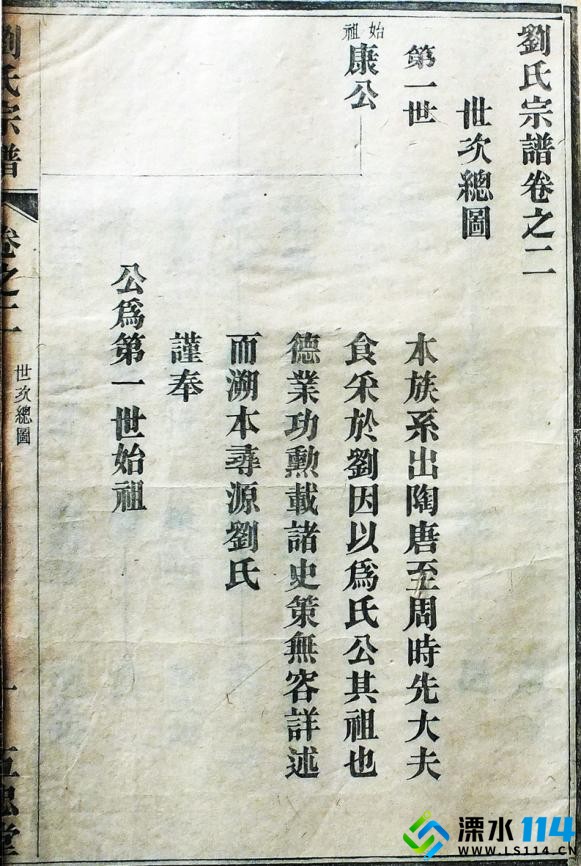 劉氏宗譜卷之二
世次總圖
第一世
始祖
康公
本族系出陶唐至周時先大夫
食采於劉因以爲氏公其祖也
德業功勳載諸史策無容詳述
而溯本尋源劉氏
謹奉
公爲第一世始祖
劉氏宗譜
卷之二
世次總圖
一
堂
溧水114
WWW.LS114.CN